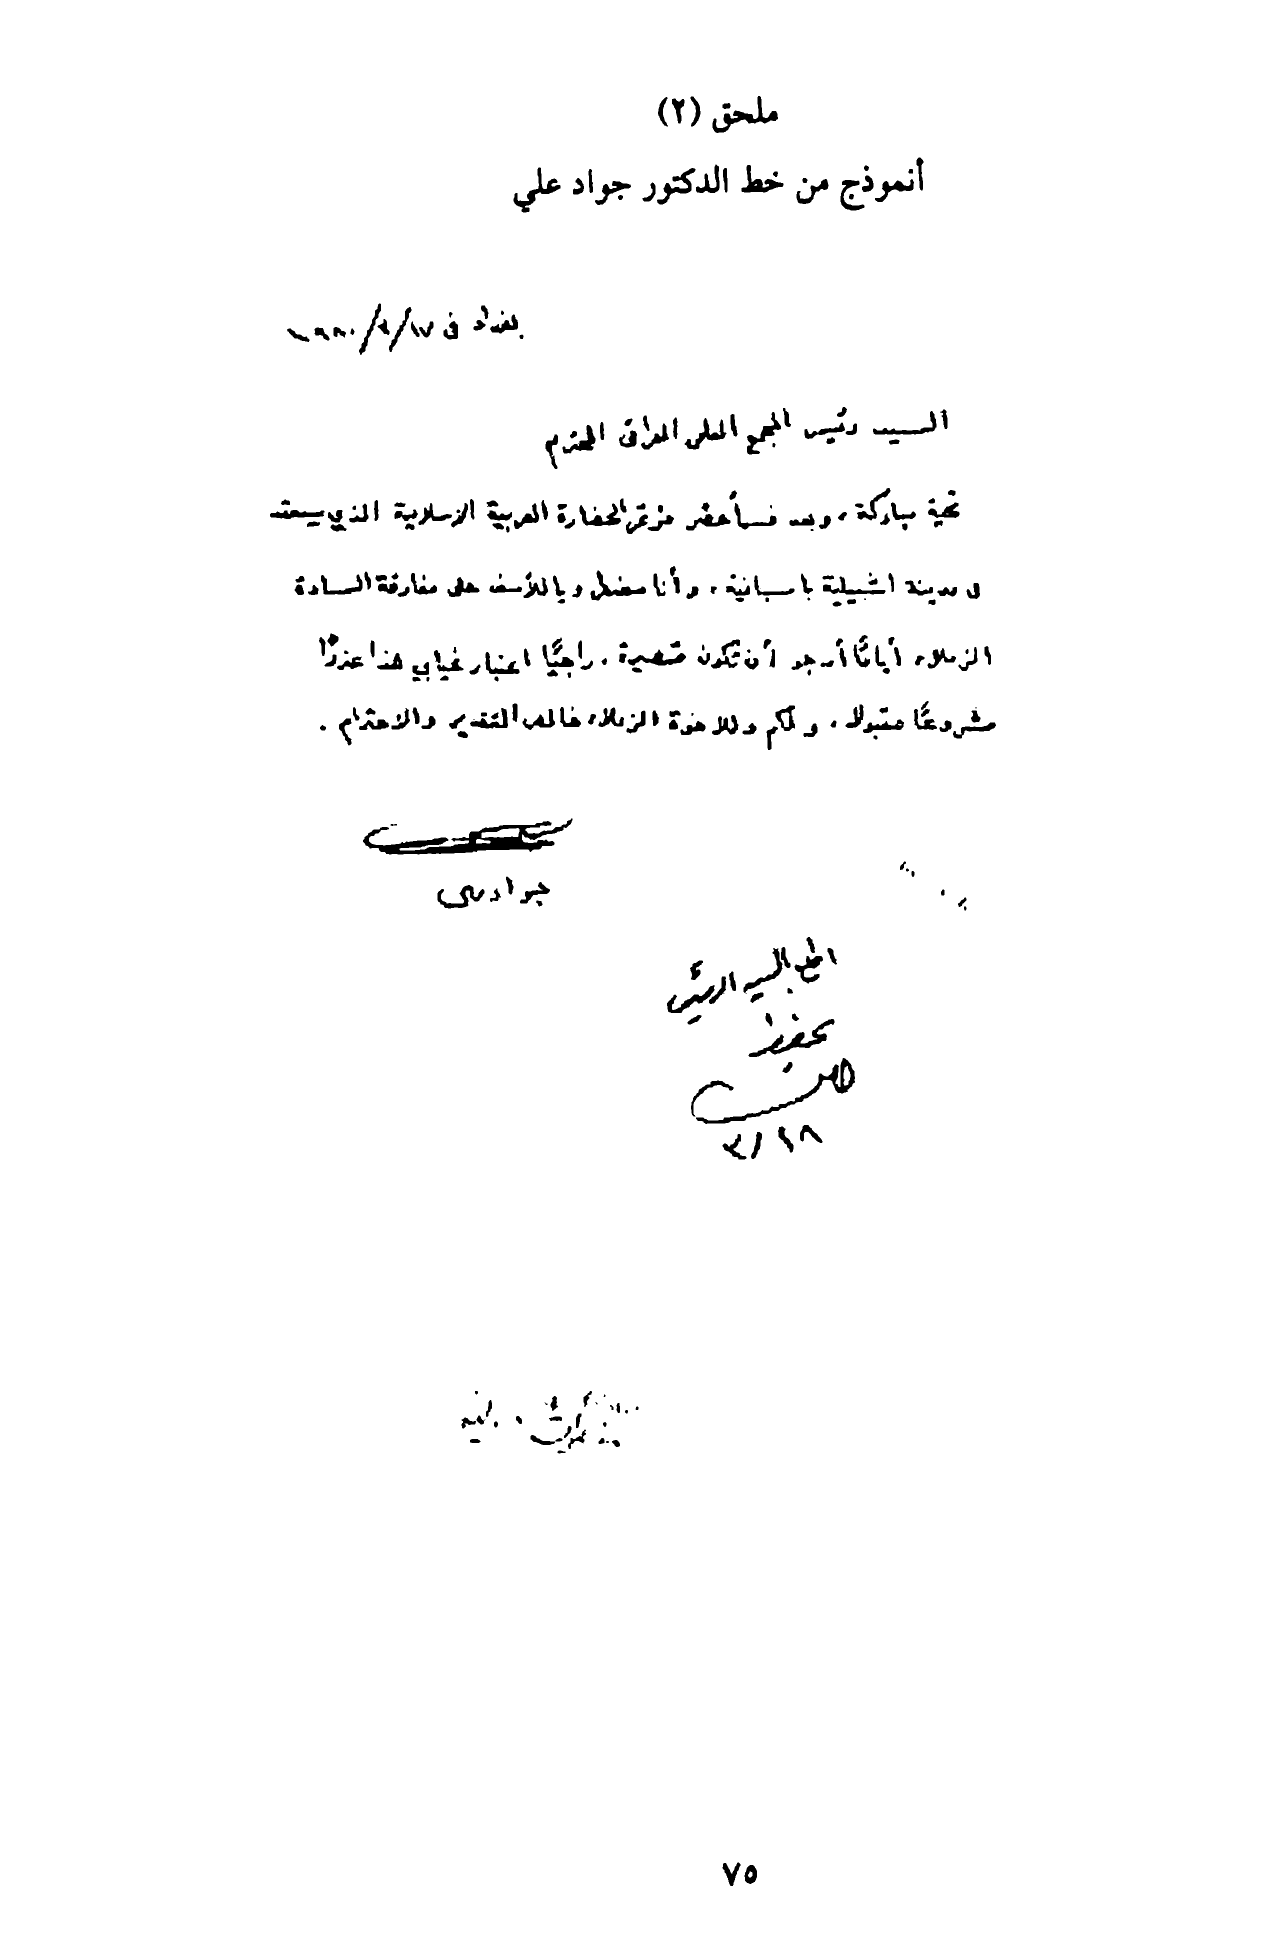 ملحق (٢)
أنموذج من خط الدكتور جواد علي
بغداد في ١٧/٣/١٩٨٠
السيد رئيس المجمع العلمي العراقي المحترم
تحية مباركة، وبعد فسأحضر مؤتمر الحضارة العربية الإسلامية الذي سيعقد
في مدينة اشبيلية باسبانية، وأنا مضطر ويا للأسف على مفارقة السادة
الزملاء أيامًا أرجو أن تكون قصيرة، راجيًا اعتبار غيابي هذا عذرًا
مشروعًا مقبولا، ولكم وللاخوة الزملاء خالص التقدير والاحترام.
جواد علي
اطلع السيد الرئيس
تحفظ
١٨/٣
٧٥